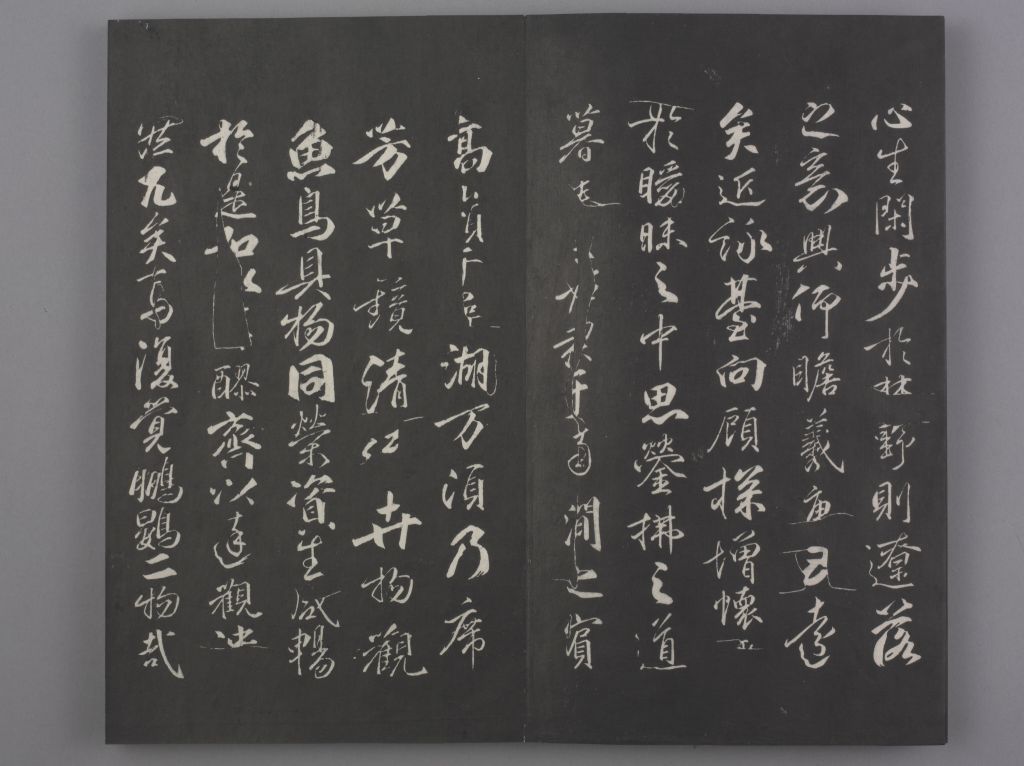 心生閑步於林野則遼落
之意興仰瞻羲唐已遠
矣近詠臺向顧探增懷
於曖昧之中思瑩拂之道
暮于南澗之賓
高湖万頃乃席
芳草鏡清流卉物觀
魚鳥具物同榮資生咸暢
於是和醪齊以達觀泆
然兀矣焉復覺鵬鷃二物哉